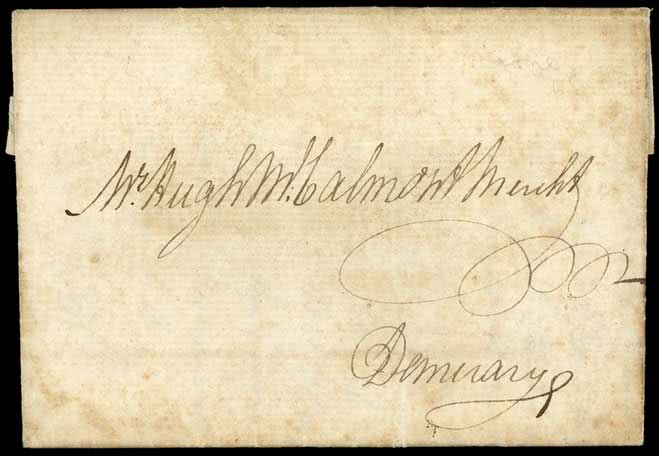 Mr. Hugh McCalmont Mercht
Demerary